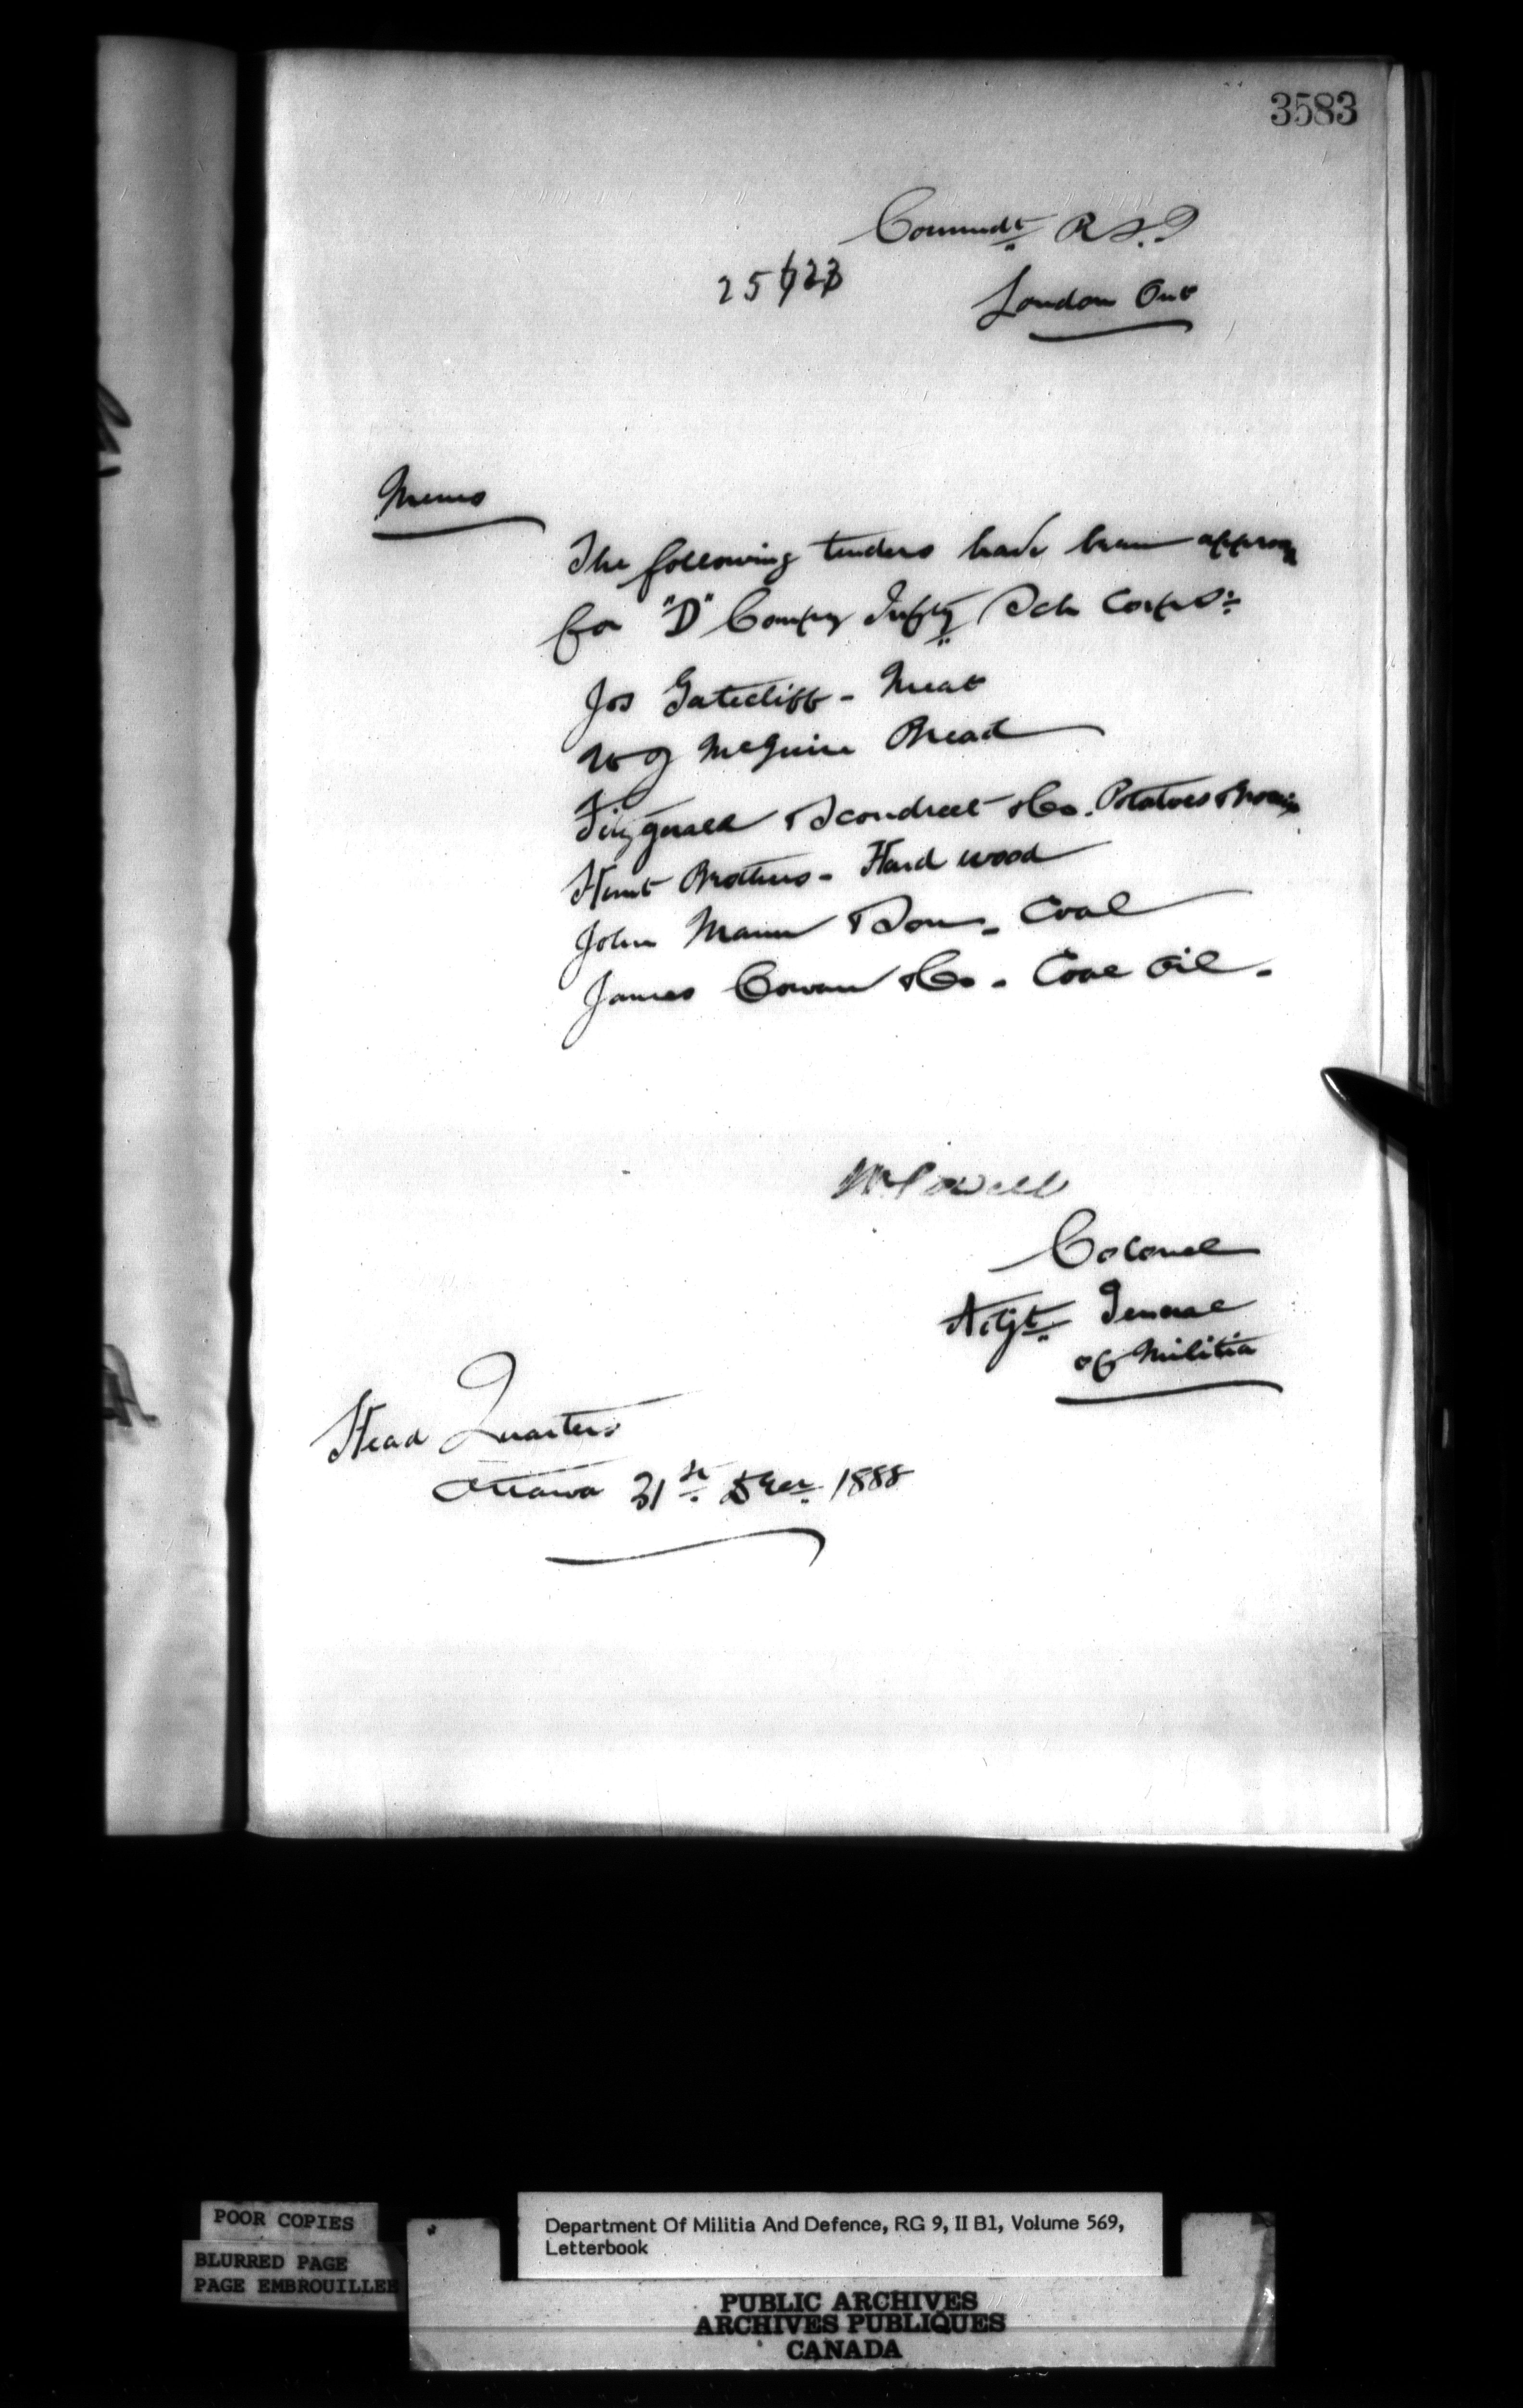 3583
Commdt R S. I
London Ont
Memo
The following tenders have been approv
for "D" Compy Infty Sch Corps:
Jos Gatecliff - Meat
W J McGuire Bread
Fitzgerald Scandrett & Co. Potatoes &
Hunt Brothers - Hard wood
John Mann & Son - Coal
James Cowan & Co - Coal Oil -
W Powell
Colonel
Adjt General
of Militia
Head Quarters
Ottawa 31st Decr 1888
POOR COPIES
BLURRED PAGE
PAGE EMBROUILLEE
Department Of Militia And Defence, RG 9, II B1, Volume 569,
Letterbook
PUBLIC ARCHIVES
ARCHIVES PUBLIQUES
CANADA